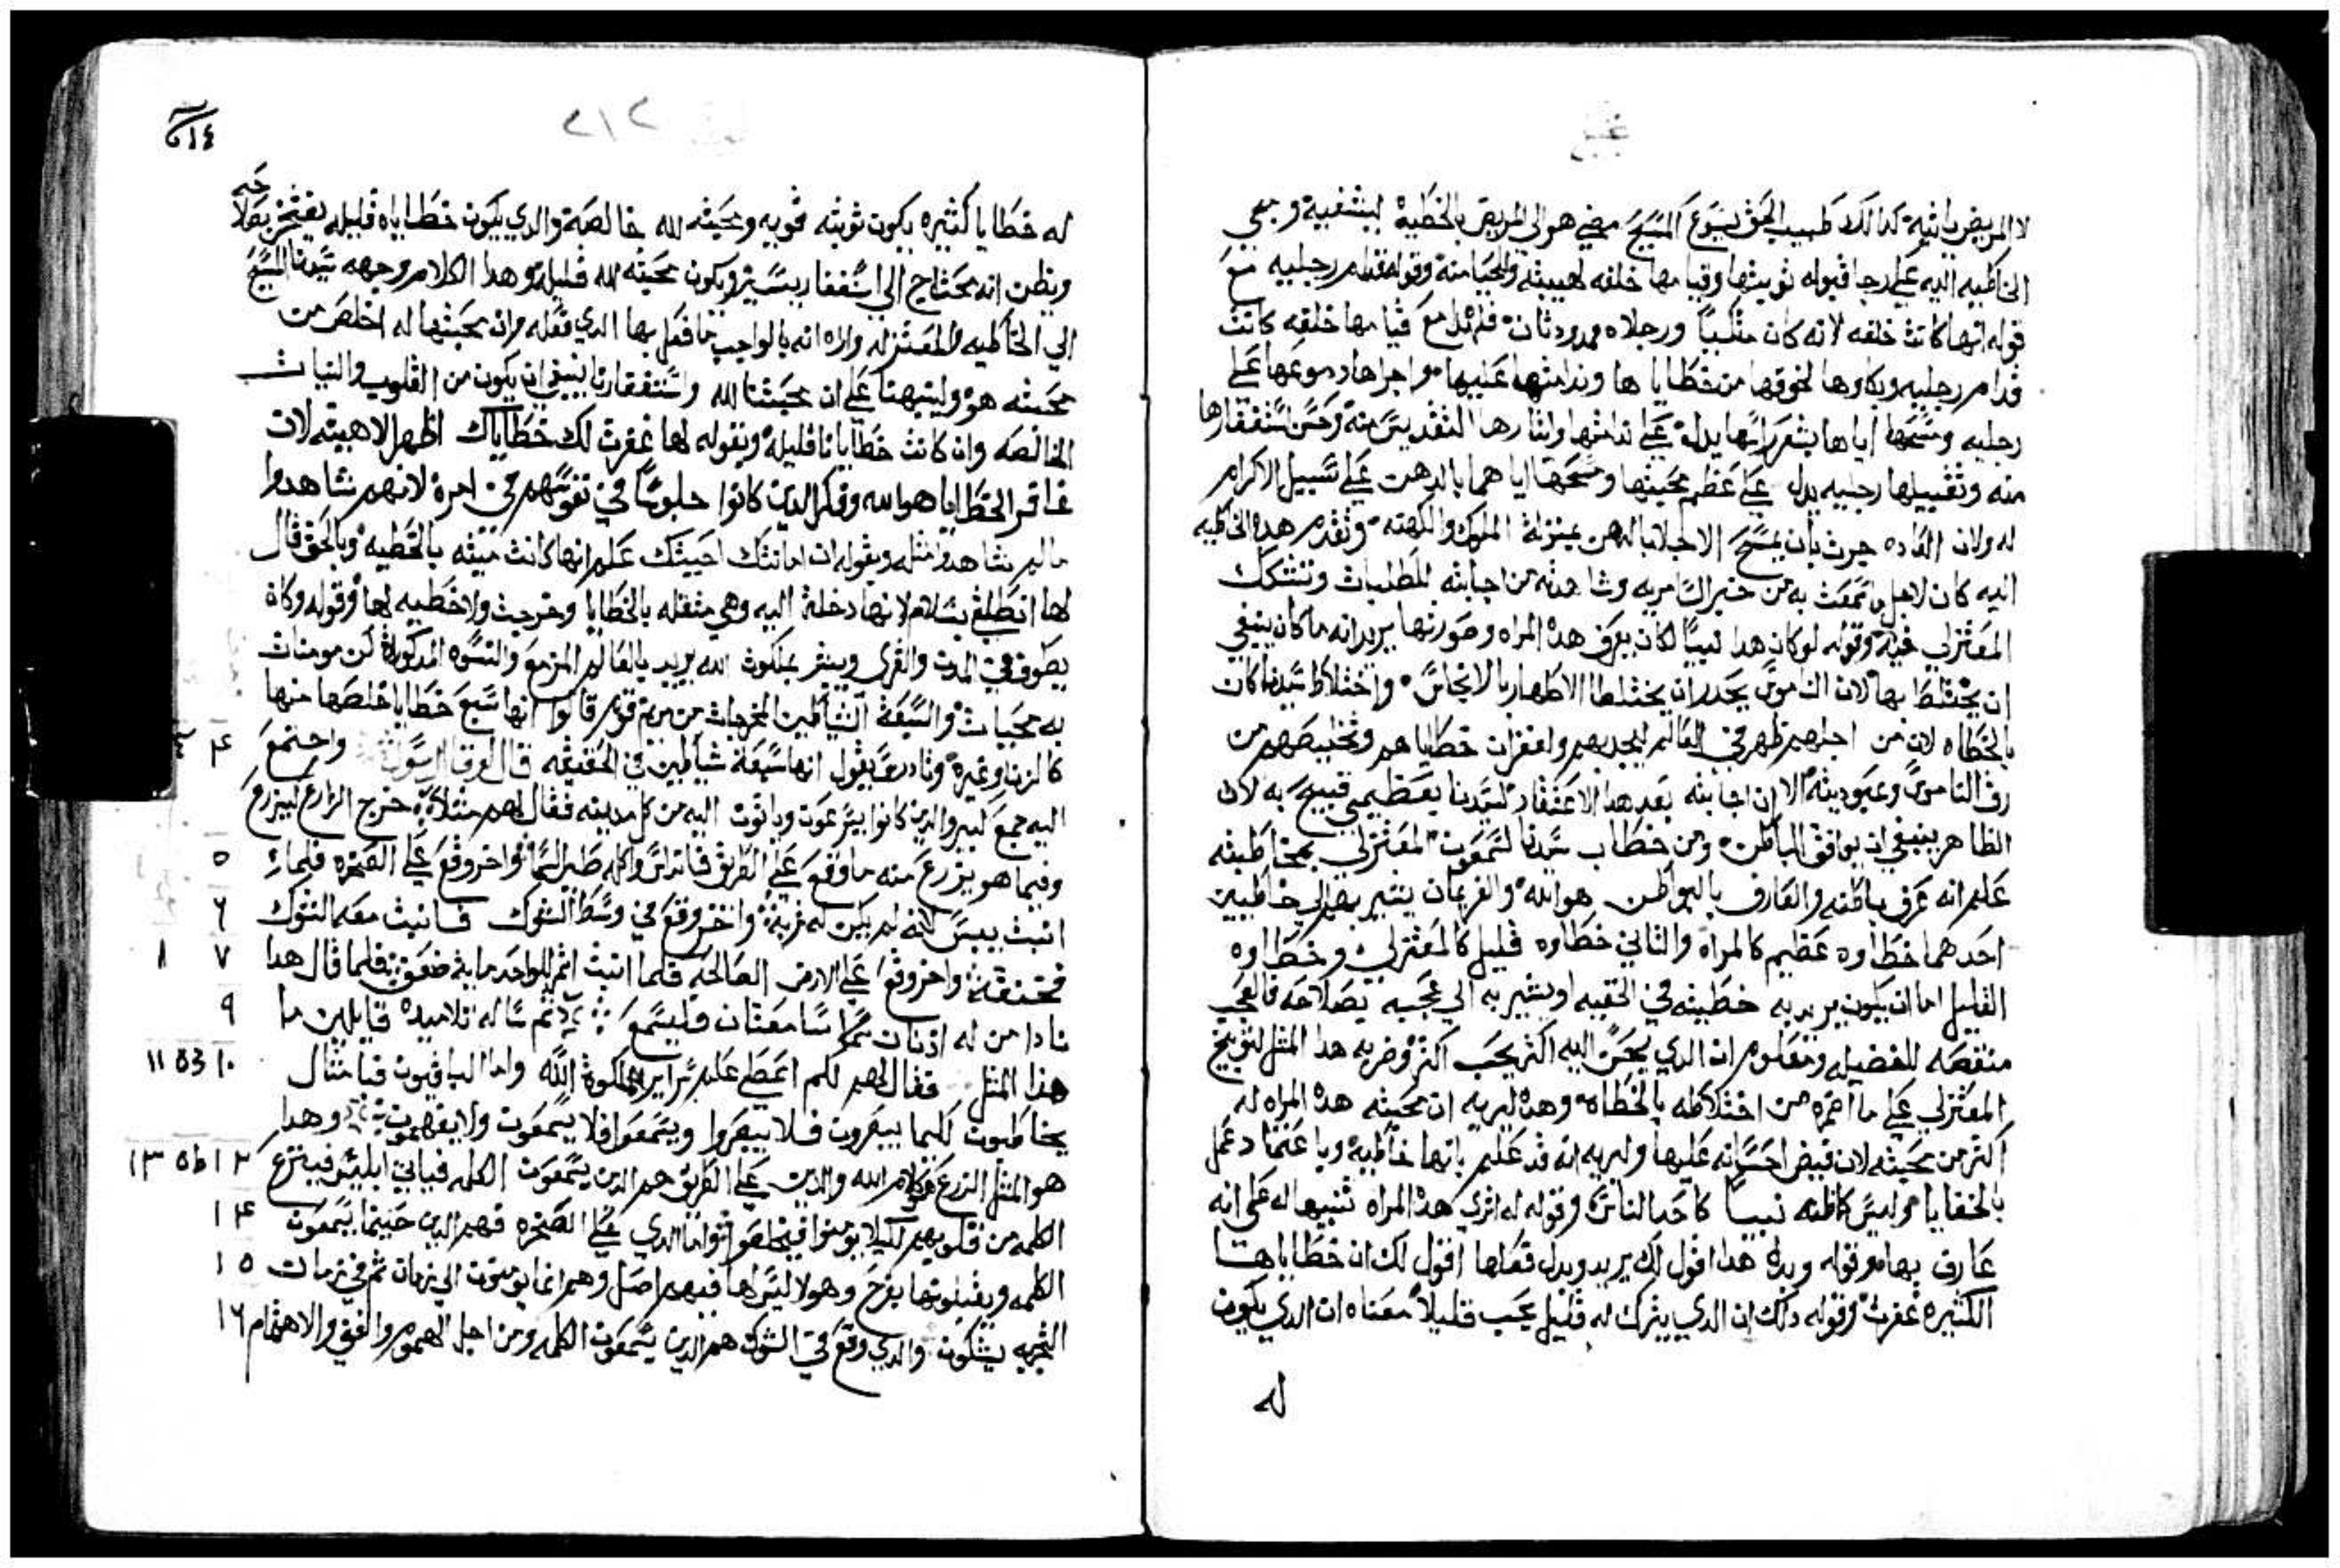 لا المريض ياتيه كدالك طبيب الحق يسوع المسيح مضي هو الي المريض بالخطية ليشفيه ومجي
الخاطيه اليه علي رجا قبوله توبيتها وقيامها خلفه لهيبته والحيا منه وقوله قدام رجليه مع
قوله انها كانت خلفه لانه كان متكيا ورجلاه ممدودتان فلم تزل مع قيامها خلفه كانت
قدام رجليه وبكاوها لخوفها من خطاياها وندامتها عليها واجراها دموعها علي
رجليه ومسحها اياها بشعر راسها يدل علي ندامتها وايتارها التقديس منه وحسن استغفارها
منه وتقبيلها رجليه يدل علي عظم محبتها ومسحها اياهما بالدهن علي سبيل الاكرام
له ولان العاده جرت بان يمسح الاجلا بالدهن بمنزلة الملوك والكهنه وتقدم هده الخاطيه
اليه كان لاجل ما سمعت به من خبر السامريه وشاهدته من اجابته للطلبات وتشكك
المعتزلي فيه وقوله لو كان هدا نبيا لكان يعرف هده المراه وصورتها يريد انه ما كان ينبغي
ان يختلط بها لان الناموس يحدر ان يختلط الاطهار بالانجاس واختلاط سيدنا كان
بالخطاه لان من اجلهم ظهر في العالم ليجدبهم واغفران خطاياهم وتخليصهم من
رق الناموس وعبوديته الا ان اجابته بعد هدا الاعتقاد لسيدنا بعظيمي قبيح به لان
الظاهر ينبغي ان يوافق الباطن ومن خطاب سيدنا لسمعون المعتزلي بمخاطبته
علم انه عرف باطنه والعارف بالبواطن هو الله والغريمان يشير بهم الي خاطيين
احدهما خطاوه عظيم كالمراه والتاني خطاوه قليل كالمعتزلي وخطاوه
القليل اما ان يكون يريد به خطيته في الحقيقه او يشير به الي عجبه بصلاحه فالعجب
منقصه للفضيله ومعلوم ان الدي يحسن اليه اكتر يحب اكتر وضربه هدا المتل لتوبيخ
المعتزلي علي ما اضمره من اختلاطه بالخطاه وهده ليريه ان محبته هده المراه له
اكتر من محبته لان قيض احسانه عليها وليريه انه قد علم بانها خاطيه وباعتماد عمل
بالخفايا وليس كاظنه نبيا كاحد الناس وقوله له اتري هده المراه تنبيها له علي انه
عارف بها وقوله وبدل هدا اقول لك يريد وبدل فعلها اقول لك ان خطاياها
الكتيره غفرت وقوله دلك ان الدي يترك له قليل يحب قليلا معناه ان الدي يكون
له
٢١٤
له خطايا كتيره يكون توبته قويه ومحبته لله خالصة والدي يكون خطاياه قليله يفتخر بصلاحه
ويظن انه محتاج الي استغفار يسير ويكون محبته لله قليله وهدا الكلام وجهه سيدنا المسيح
الي الخاطيه والمعتزلي واراه انه بالواجب ما فعل بها الدي فعله وان محبتها له اخلص من
محبته هو ولينبهنا علي ان محبتنا لله واستغفارنا ينبغي ان يكون من القلوب والنيات
الخالصه وان كانت خطايانا قليله وبقوله لها غفرت لك خطاياك اظهر لاهيته لان
غافر الخطايا هو الله وفكر الدين كانوا جلوسا في نفوسهم في امره لانهم شاهدوا
ما لم يشاهدوا متله وبقوله ان امانتك احييتك علم انها كانت ميته بالخطيه وبالحق قال
لها انطلقي بسلام لانها دخلة اليه وهي متقله بالخطايا وخرجت ولا خطيه لها وقوله وكان
يطوف في المدن والقري ويبشر بملكوت الله يريد بالعالم المزمع والنسوه المدكورة كن مومنات
به محبيات والسبعة الشياطين المخرجات من مريم قوم قالوا انها سبع خطايا خلصها منها
كالزنا وغيره وتادرس يقول انها سبعة شياطين في الحقيقه قال لوقا الرسول واجتمع ٤
اليه جمع كبير والدين كانوا يسرعون وياتون اليه من كل مدينه فقال لهم متلا خرج الزارع ليزرع
وفيما هو يزرع منه ما وقع علي الطريق فانداس واكله طير السما واخر وقع علي الصخره فلما ٥
انبت يبس لانه لم يكن له تربة واخر وقع في وسط الشوك فانبت معه الشوك ٦
فخنقته واخر وقع علي الارض الصالحه فلما انبت اتمر للواحد مايه ضعف فلما قال هدا ٧ ٨
نادا من له ادنان سامعتان فليسمع تم ساله تلاميده قايلين ما ٩
هدا المتل فقال لهم لكم اعطي علم سراير ملكوت الله واما الباقيون فبامتال ١٠ ١١
يخاطبون لكيما يبصرون فلا يبصروا ويسمعوا فلا يسمعون ولا يفهمون وهدا
هو المتل الزرع هو كلام الله والدين علي الطريق هم الدين يسمعون الكلمه فياتي ابليس فينزع ١٢ ١٣
الكلمه من قلوبهم لكيلا يومنوا فيخلصوا واما الدي علي الصخره فهم الدين حينما يسمعون ١٤
الكلمه ويقبلونها بفرح وهولا ليس لها فيهم اصل وهم انما يومنون الي زمان تم في زمان ١٥
التجربه يشكون والدي وقع في الشوك هم الدين يسمعون الكلمه ومن اجل الهموم والغني والاهتمام ١٦